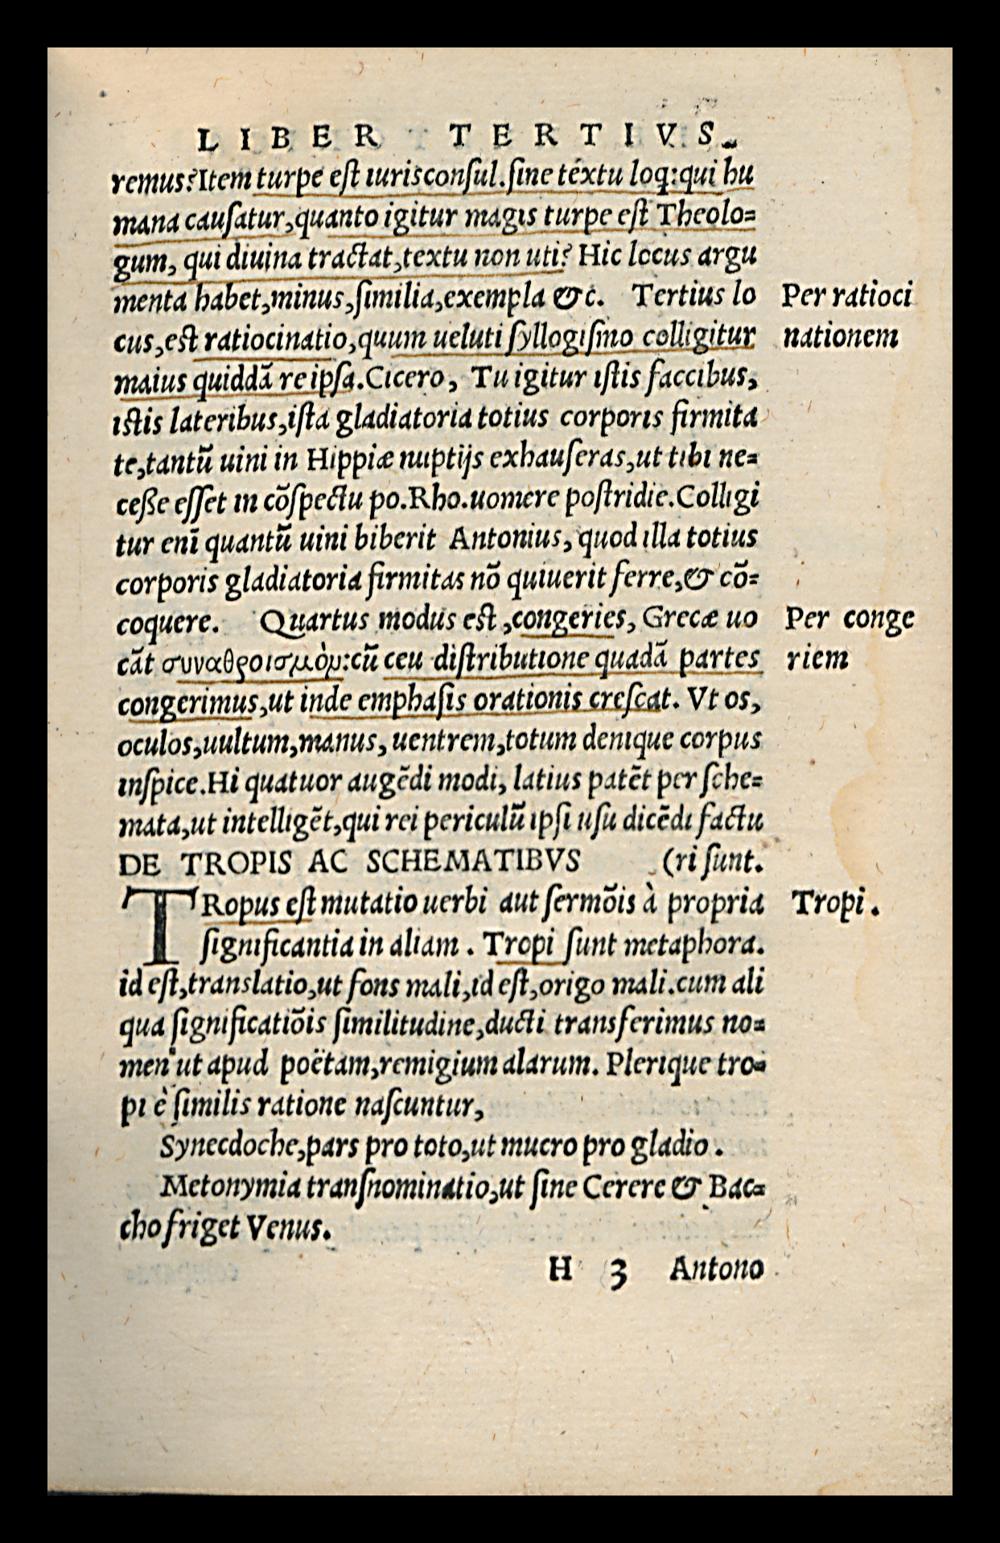 LIBER TERTIVS.
remus? Item turpe est iurisconsul. sine textu loq: qui hu
mana causatur, quanto igitur magis turpe est Theolo=
gum, qui diuina tractat, textu non uti? Hic locus argu
menta habet, minus, similia, exempla &c. Tertius lo
Per ratioci
cus, est ratiocinatio, quum ueluti syllogismo colligitur
nationem
maius quiddã re ipsa. Cicero, Tu igitur istis faccibus,
istis lateribus, ista gladiatoria totius corporis firmita
te, tantũ uini in Hippiæ nuptijs exhauseras, ut tibi ne=
ceße esset in cõspectu po. Rho. uomere postridie. Colligi
tur enĩ quantũ uini biberit Antonius, quod illa totius
corporis gladiatoria firmitas nõ quiuerit ferre, & cõ=
coquere. Quartus modus est, congeries, Grecæ uo
Per conge
cãt συναθροισμὸμ: cũ ceu distributione quadã partes
riem
congerimus, ut inde emphasis orationis crescat. Vt os,
oculos, uultum, manus, uentrem, totum denique corpus
inspice. Hi quatuor augẽdi modi, latius patẽt per sche=
mata, ut intelligẽt, qui rei periculũ ipsi usu dicẽdi factu
DE TROPIS AC SCHEMATIBVS (ri sunt.
TRopus est mutatio uerbi aut sermõis à propria
Tropi.
significantia in aliam. Tropi sunt metaphora.
id est, translatio, ut fons mali, id est, origo mali. cum ali
qua significatiõis similitudine, ducti transferimus no=
men ut apud poëtam, remigium alarum. Plerique tro=
pi è similis ratione nascuntur,
Synecdoche, pars pro toto, ut mucro pro gladio.
Metonymia transnominatio, ut sine Cerere & Bac=
cho friget Venus.
H 3 Antono